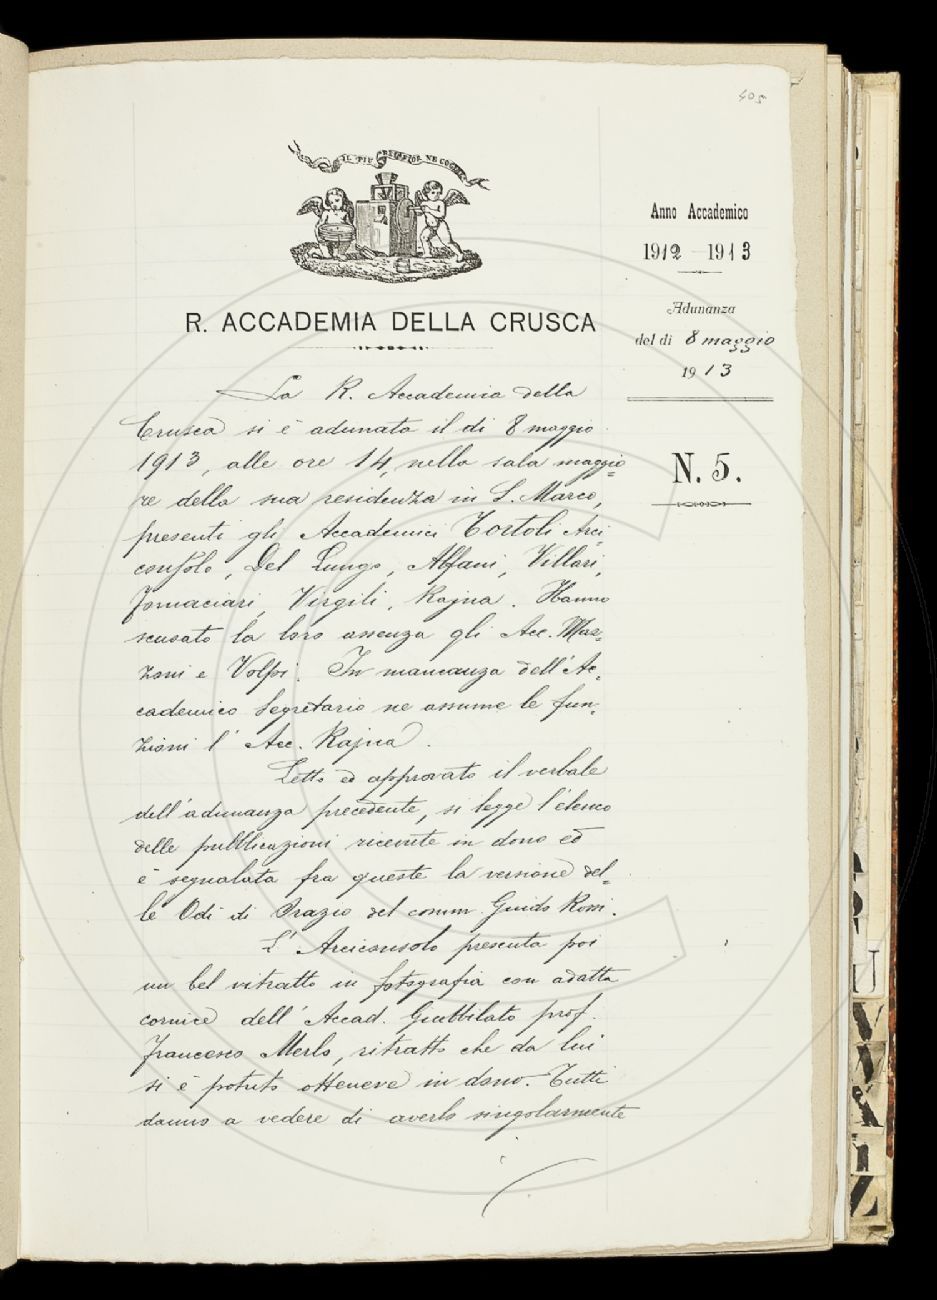 405
IL PIÙ BEL FIOR NE COGLIE
Anno Accademico
1912 - 1913
Adunanza
del dì 8 maggio
1913
N. 5.
R. ACCADEMIA DELLA CRUSCA
La R. Accademia della
Crusca si è adunata il dì 8 maggio
1913, alle ore 14, nella sala maggio=
re della sua residenza in S. Marco,
presenti gli Accademici Tortoli Arci-
consolo, Del Lungo, Alfani, Villari,
Fornaciari, Virgili, Rajna. Hanno
scusato la loro assenza gli Acc. Maz-
zoni e Volpi. In mancanza dell'Ac-
cademico Segretario ne assume le fun-
zioni l'Acc. Rajna.
Letto ed approvato il verbale
dell'adunanza precedente, si legge l'elenco
delle pubblicazioni ricevute in dono ed
è segnalata fra queste la versione del-
le Odi di Orazio del comm. Guido Rossi.
L'Arciconsolo presenta poi
un bel ritratto in fotografia con adatta
cornice dell'Accad. prof.
Francesco Merlo, ritratto che da lui
si è potuto ottenere in dono. Tutti
danno a vedere di averlo singolarmente